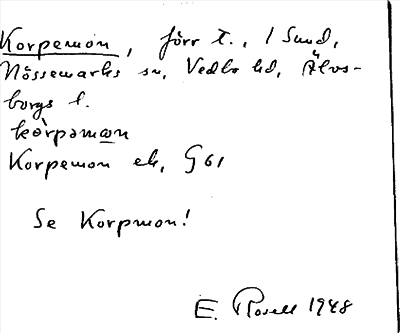 Korpemon, förr t., i Sund,
Nössemarks sn, Vedbo hd, Älvs-
borgs l.
kòrpəmɷn
Korpemon ek, G 61
Se Korpmon!
E. Rosell 1948